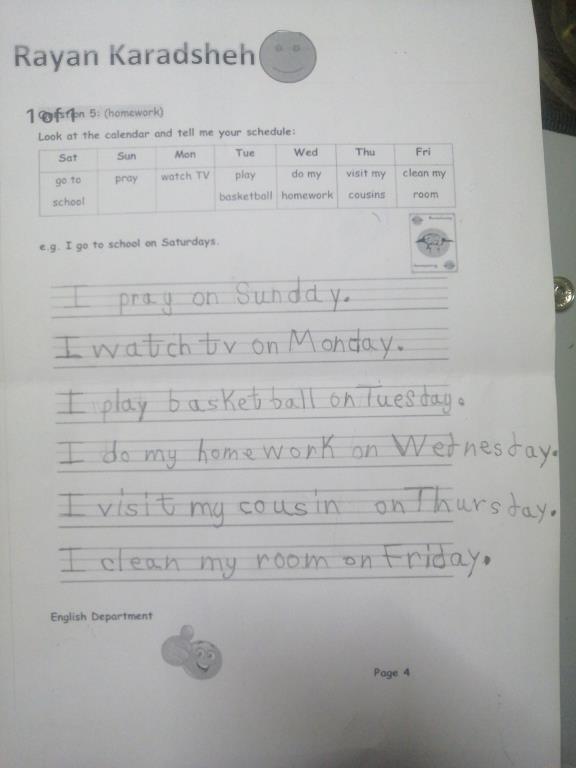 Rayan Karadsheh
1 of 1
Question 5: (homework)
Look at the calendar and tell me your schedule:
Sat Sun Mon Tue Wed Thu Fri
go to school pray watch TV play basketball do my homework visit my cousins clean my room
e.g. I go to school on Saturdays.
I pray on Sunday.
I watch tv on Monday.
I play basketball on Tuesday.
I do my homework on Wetnesday.
I visit my cousin on Thursday.
I clean my room on Friday.
English Department
Page 4